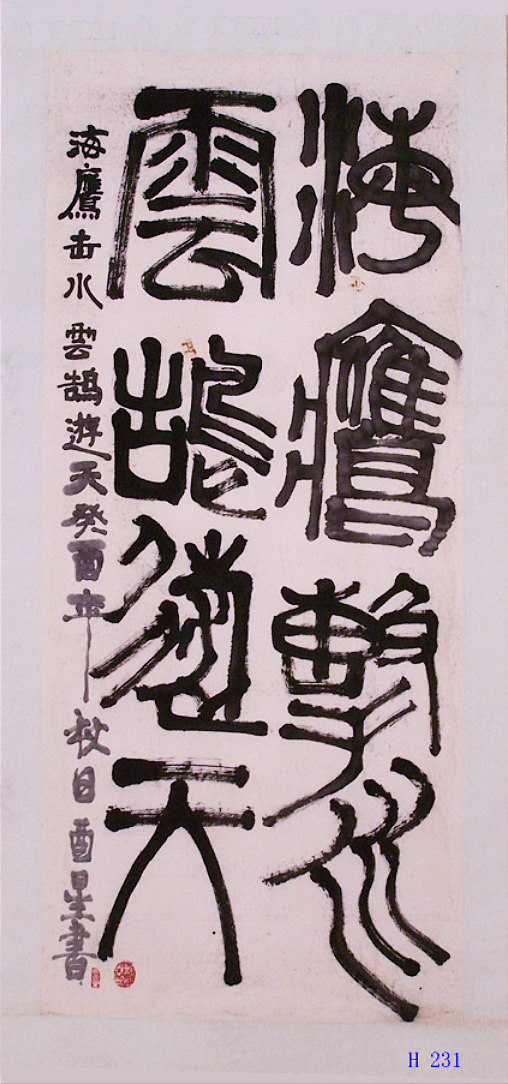 海鷹擊水
雲鵠遊天
海鷹击水雲鵠遊天癸酉年秋日酉星書
H 231